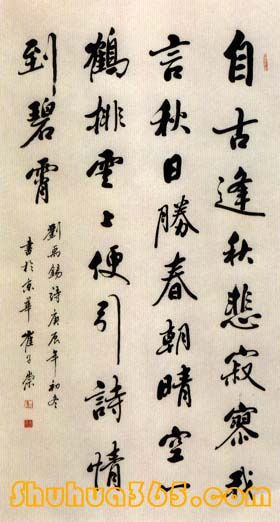 自古逢秋悲寂寥我
言秋日勝春朝晴空一
鶴排雲上便引詩情
到碧霄
劉禹錫詩庚辰年初冬
書於京華崔子
Shuhua365.com